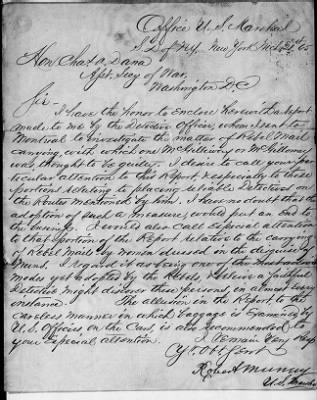 Office U.S. Marshal
S.D. of N.Y. New York
Hon Chas. A. Dana
Asst. Secy of War,
Washington D.C.
Sir.
I have the honor to Enclose herewith a Report
made to me by the Detective Officer, whom I sent to
Montreal to investigate the matter of Rebel Mail
carrying, with which one McGilliway or McGilloway
was thought to be guilty. I desire to call your par-
ticular attention to this Report, & especially to those
portions relating to placing reliable Detectives on
the Routes mentioned by him. I have no doubt that the
adoption of such a measure, would put an End to
the business. I would also call Especial attention
to that portion of the Report relative to the carrying
of Rebel Mails by women dressed in the disguise of
Nuns, I regard it as being one of the
means yet adopted by the Rebels. I believe a faithful
Detective might discover these persons, in almost every
instance. The allusion in the Report to the
careless manner in which baggage is Examined by
U.S. Officers, on the Cars, is also recommended to
your Especial attention.
I remain Very Resp
Yr. Obt. Servt
Robert Murray
U.S. Marshal